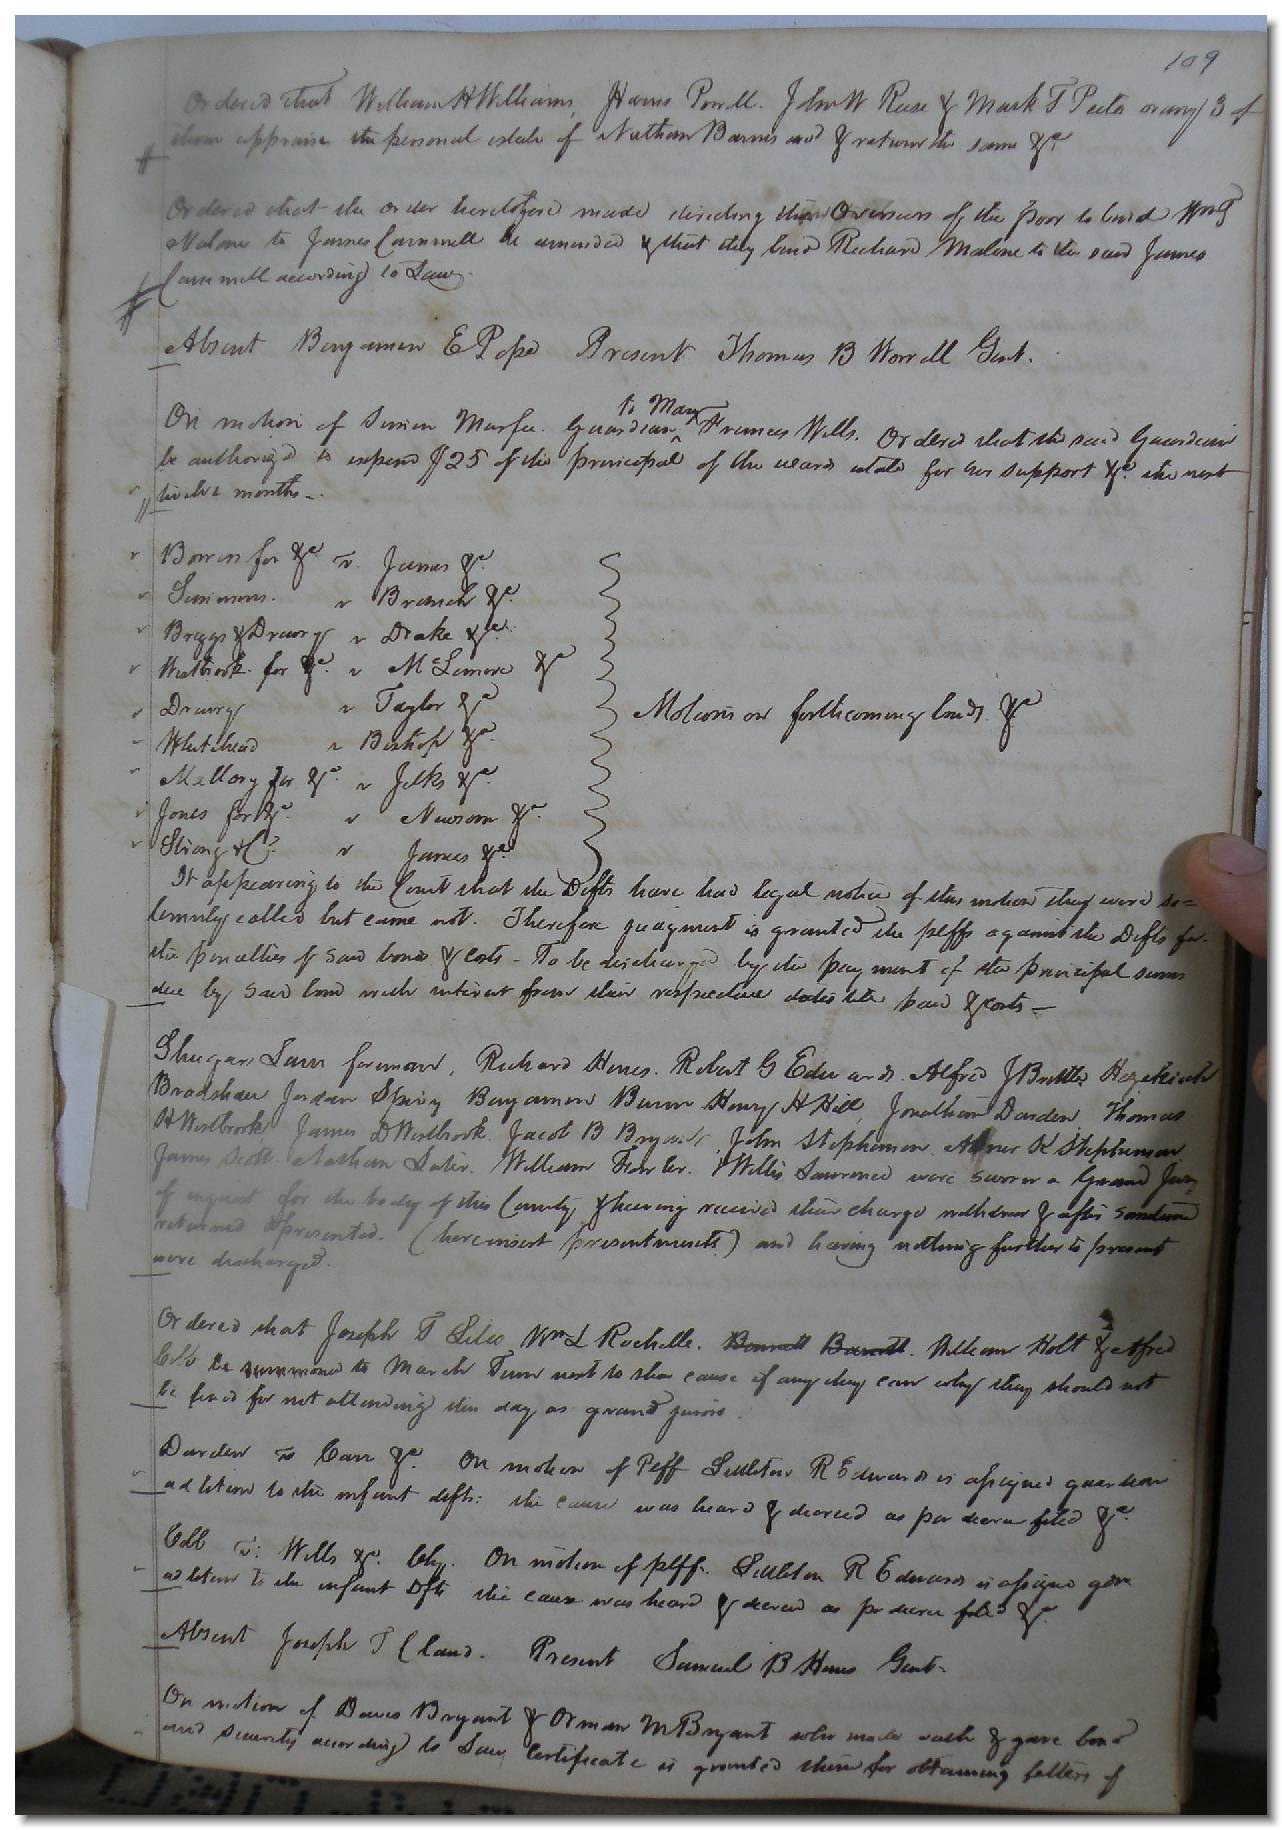 109
Ordered that William H Williams, Harris Powell. John W Reese & Mark T Peete or any 3 of
them appraise the personal estate of Nathan Barnes decd & return the same &c
Ordered that the order heretofore made directing the Overseers of the poor to bind Wm
Malone to James Cammell be amended & that they bind Richard Malone to the said James
Cammell according to Law.
Absent Benjamin E Pope Present Thomas B Worrell Gent.
to Mary
On motion of Simon Murfee Guardian Frances Wills. Ordered that the said Guardian
be authorized to expend $25 of the principal of the wards estate for her support &c the next
twelve months -.
Barnes for &c v. James &c.
Simmons. v Branch &c.
Briggs & Drewry v Drake &c.
Westbrook for &c. v McLemore &c
Drewry v Taylor &c
Whitehead v Bishop &c.
Mallory for &c. v Jelks &c.
Jones for &c. v Newsom &c.
Strong & Co. v James &c.
Motions on forthcoming bonds. &c
It appearing to the Court that the Defts have had legal notice of this motion they were so=
lemnly called but came not. Therefore judgment is granted the plffs against the Defts for
the penalties of said bond & costs - To be discharged by the payment of the principal sums
due by said bond with interest from their respective dates till paid & costs -
Shugars Lain foreman, Richard Hines. Robert G Edwards. Alfred J Brittle Hezekiah
Bradshaw Jordan Spivey Benjamin Bunn Henry H Hill, Jonathan Darden Thomas
H Westbrook, James D Westbrook. Jacob B Bryant, John Stephenson. Abner K Stephenson
James Scott. Nathan Later. William Fowler. & Willis Lawrence were sworn a Grand Jury
of inquest for the body of this County & having received their charge withdrew & after sometime
returned & presented. (here insert presentments) and having nothing further to present
were discharged.
Ordered that Joseph T Liles Wm L Rochelle. William Holt & Alfred
Cobb be summoned to March Term next to shew cause if any they can why they should not
be fined for not attending this day as grand jurors.
Darden v Carr &c. On motion of Plff Littleton R Edwards is assigned guardian
ad litem to the infant defts: the cause was heard & decreed as per decree filed &c.
Cobb v: Wills &c. Chy. On motion of plff. Littleton R Edwards is assigned gdn
ad litem to the infant Dfts the cause was heard & decreed as per decree filed &c.
Absent Joseph T Claud. Present Samuel B Hines Gent.
On motion of Davis Bryant & Orman M Bryant who made oath & gave bond
and security according to Law, Certificate is granted them for obtaining letters of